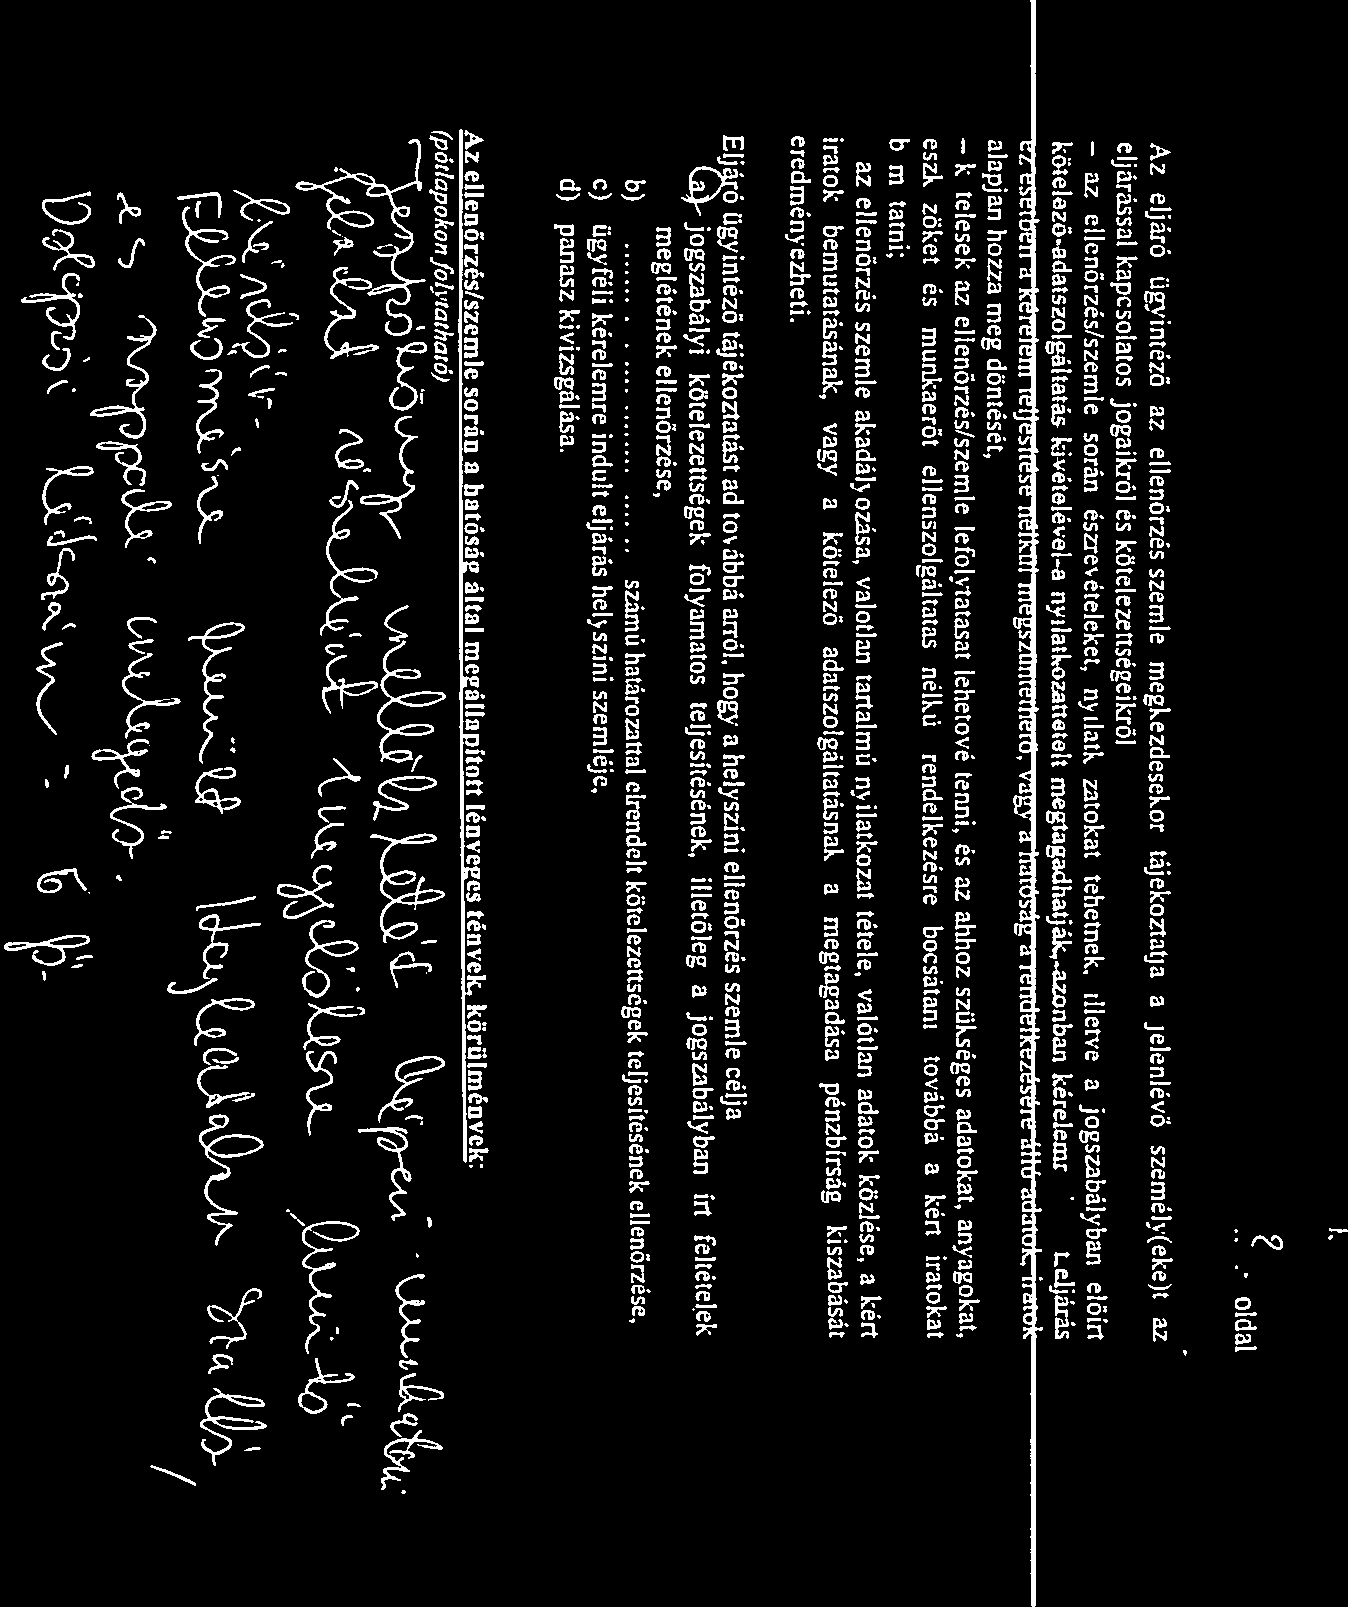 2
oldal
Az eljáró ügyintéző az ellenőrzés szemle megkezdesekor tájekoztatja a jelenlévő személy(eke)t az
eljárással kapcsolatos jogaikról és kötelezettségeikről
– az ellenőrzés/szemle során észrevételeket, nyilatk zatokat tehetnek, illetve a jogszabályban előírt
kötelező adatszolgáltatás kivételével a nyilatkozattételt megtagadhatják, azonban kérelemr eljárás
ez esetben a kérelem teljesítése nélkül megszüntethető, vagy a hatóság a rendelkezésére álló adatok, iratok
alapjan hozza meg döntését,
– k telesek az ellenőrzés/szemle lefolytatasat lehetové tenni, és az ahhoz szükséges adatokat, anyagokat,
eszk zöket és munkaerőt ellenszolgáltatas nélkü rendelkezésre bocsátanı továbbá a kért iratokat
b m tatni;
az ellenőrzés szemle akadályozása, valotlan tartalmú nyilatkozat tétele, valótlan adatok közlése, a kért
iratok bemutatásának, vagy a kötelező adatszolgáltatásnak a megtagadása pénzbírság kiszabását
eredményezheti.
Eljáró ügyintéző tájékoztatást ad továbbá arról, hogy a helyszíni ellenőrzés szemle célja
a) jogszabályi kötelezettségek folyamatos teljesítésének, illetőleg a jogszabályban írt feltételek
meglétének ellenőrzése,
b) ....... . .... ........ ...... .. számú határozattal elrendelt kötelezettségek teljesítésének ellenőrzése,
c) ügyféli kérelemre indult eljárás helyszíni szemléje,
d) panasz kivizsgálása.
Az ellenőrzés/szemle során a hatóság által megállapított lényeges tények, körülmények:
(pótlapokon folytatható)
feladat részeként
Ellenőrzésre került Hajléktalan Szálló
és nappali melegedő.
Dolgozói létszám: 5 fő.